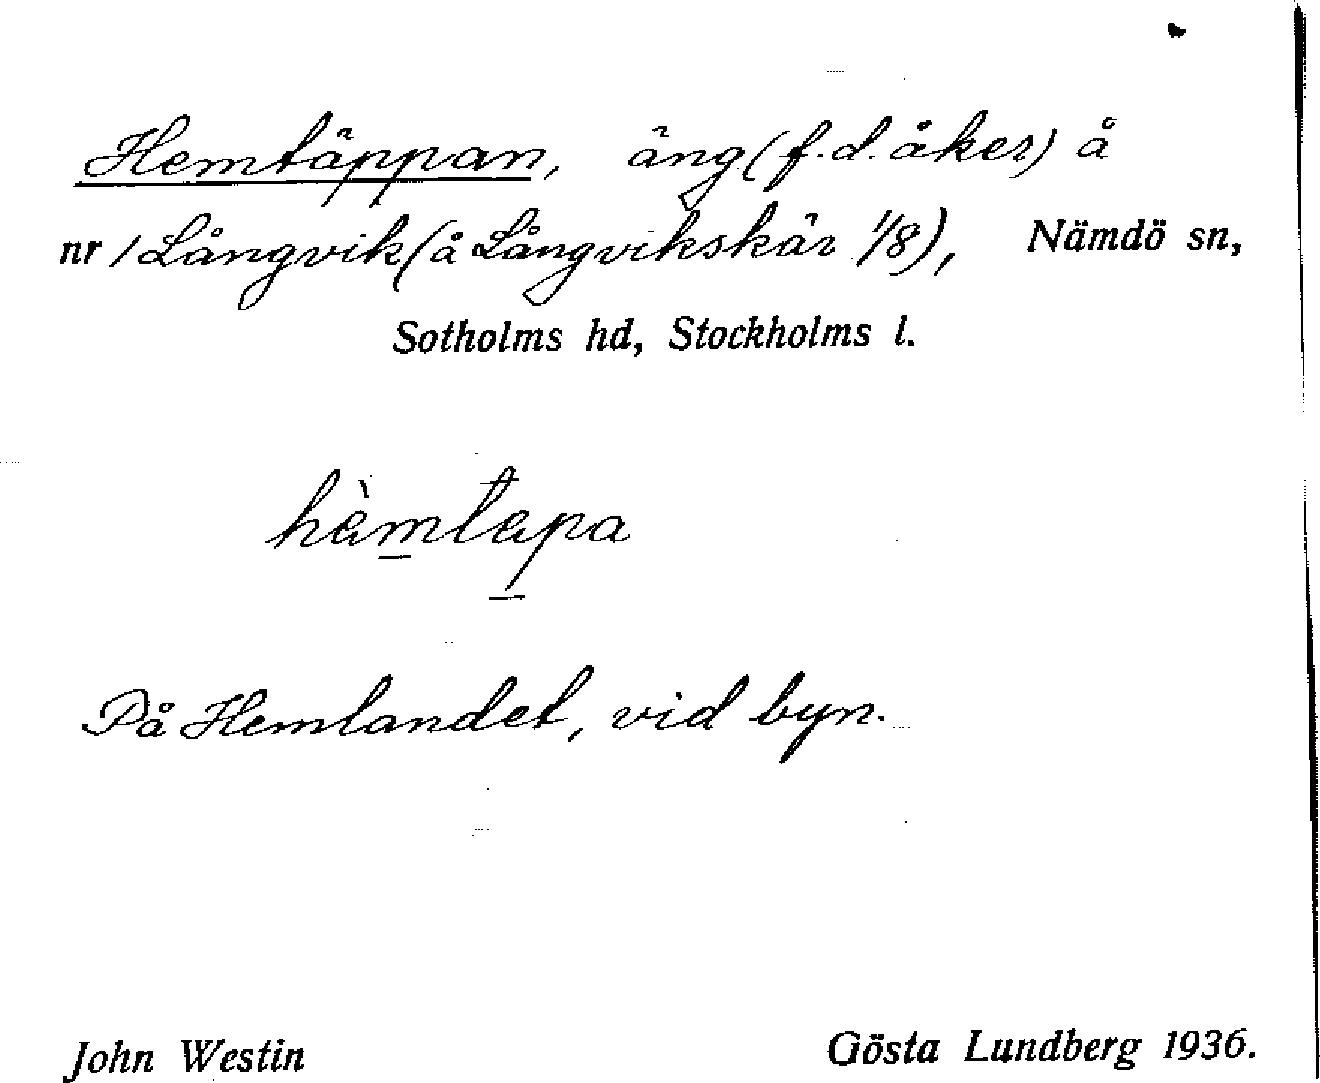 Hemtäppan, äng (f.d. åker) å
nr 1 Långvik (å Långvikskär 1/8), Nämdö sn,
Sotholms hd, Stockholms l.
hèmtepa
På Hemlandet, vid byn.
John Westin Gösta Lundberg 1936.